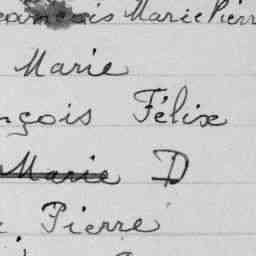 François Marie Pierr
Marie
nçois Félix
Marie D
Pierre